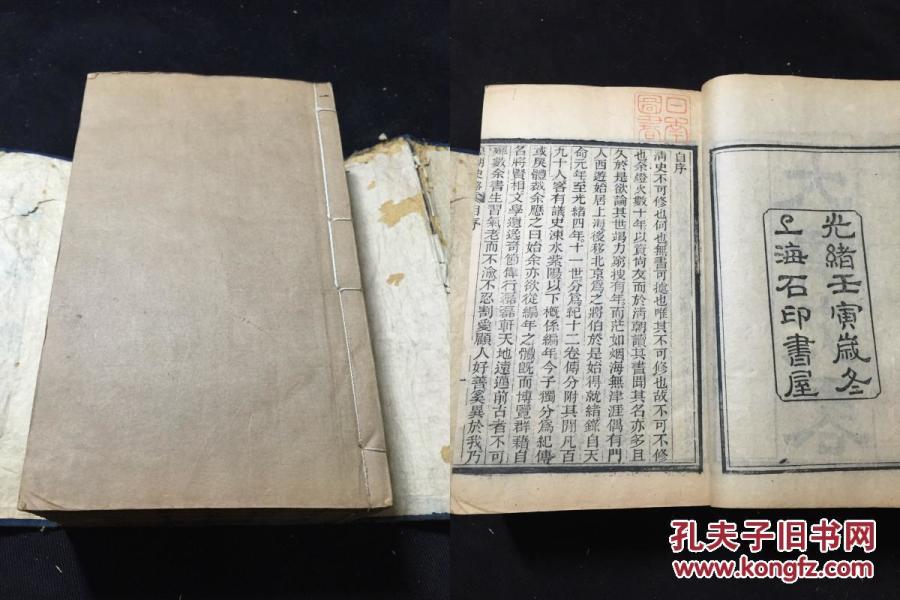 光緒壬寅歲冬
上海石印書屋
日南
圖書
自序
清史不可修也何也無書可據也唯其不可修也故不可不修
也余燈火數十年以資尚友而於清朝讀其書聞其名亦多且
久於是欲論其世竭力窮搜有年而茫如烟海無津涯偶有門
人西遊始居上海後移北京爲之將伯於是始得就緒鎵自天
命元年至光緒四年十一世分爲紀十二卷傳分附其間凡百
九十人客有議史涑水紫陽以下概係編年今子獨分爲紀傳
或戾體裁余應之曰始余亦欲從編年之體旣而博覽群籍自
名將賢相文學遺逸奇節偉行磊磊軒天地遠過前古者不可
數余書生習氣老而不渝不忍割愛顧人好善奚異於我乃
自序
孔夫子旧书网
www.kongfz.com